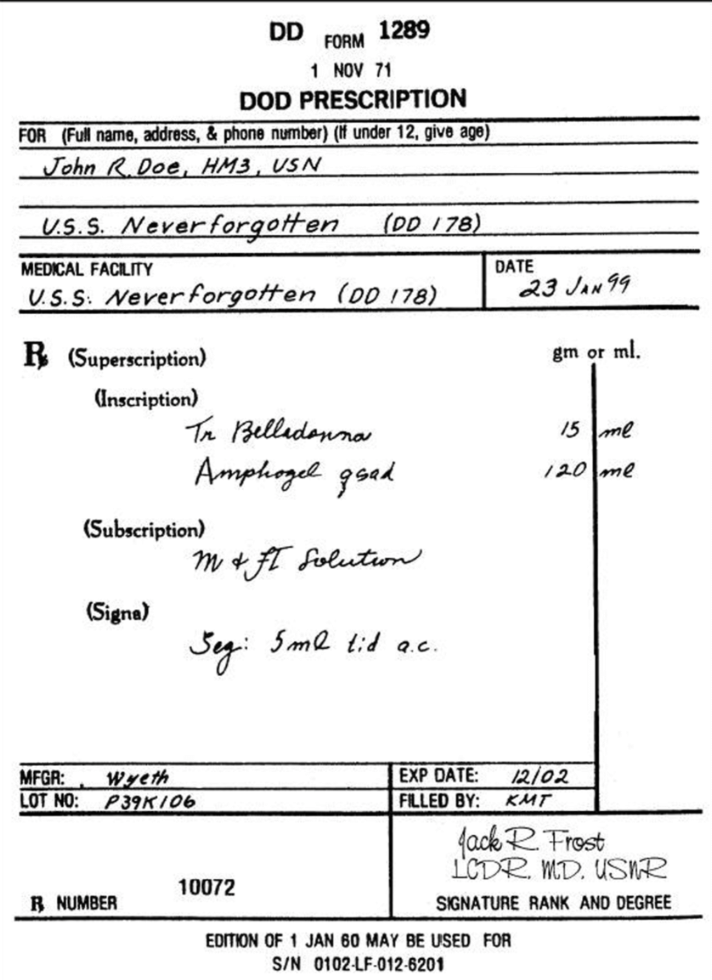 DD FORM 1289
1 NOV 71
DOD PRESCRIPTION
FOR (Full name, address, & phone number) (If under 12, give age)
John R. Doe, HM3, USN
U.S.S. Neverforgotten (DD 178)
MEDICAL FACILITY
U.S.S. Neverforgotten (DD 178)
DATE
23 JAN 99
℞ (Superscription)
gm or ml.
(Inscription)
Tr Belladonna 15 ml
Amphogel qsad 120 ml
(Subscription)
M & ft Solution
(Signa)
Sig: 5ml tid a.c.
MFGR: Wyeth
EXP DATE: 12/02
LOT NO: P39K106
FILLED BY: KMT
Jack R. Frost
LCDR. MD. USNR
10072
℞ NUMBER
SIGNATURE RANK AND DEGREE
EDITION OF 1 JAN 60 MAY BE USED FOR
S/N 0102-LF-012-6201